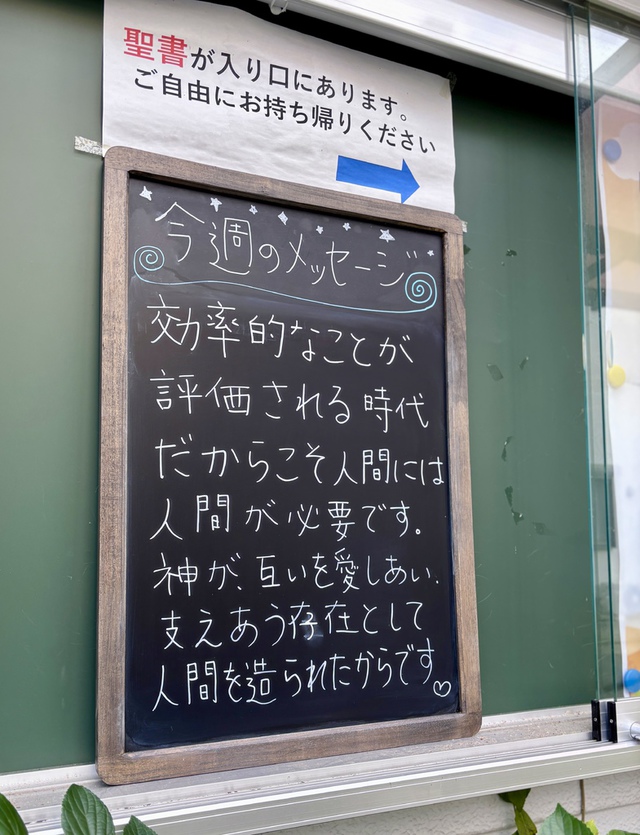 聖書が入り口にあります。
ご自由にお持ち帰りください
今週のメッセージ
効率的なことが
評価される時代
だからこそ人間には
人間が必要です。
神が、互いを愛しあい、
支えあう存在として
人間を造られたからです